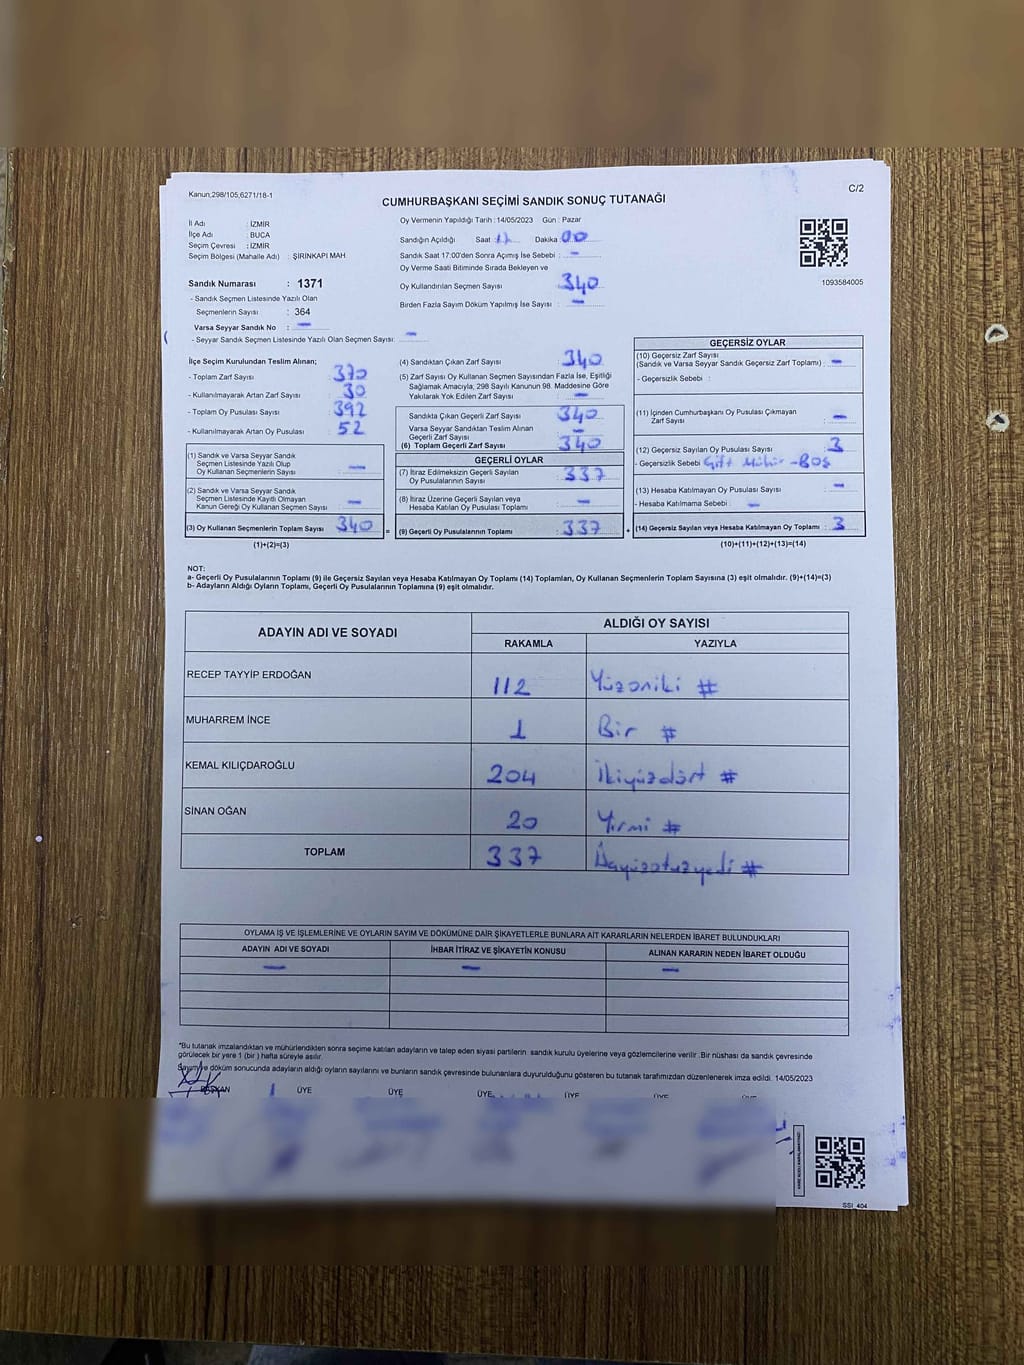 Kanun,298/105,6271/18-1
C/2
CUMHURBAŞKANI SEÇİMİ SANDIK SONUÇ TUTANAĞI
İl Adı : İZMİR
İlçe Adı : BUCA
Seçim Çevresi : İZMİR
Seçim Bölgesi (Mahalle Adı) : ŞİRİNKAPI MAH.
Sandık Numarası : 1371
- Sandık Seçmen Listesinde Yazılı Olan
Seçmenlerin Sayısı : 364
Varsa Seyyar Sandık No : —
- Seyyar Sandık Seçmen Listesinde Yazılı Olan Seçmen Sayısı: —
Oy Vermenin Yapıldığı Tarih : 14/05/2023 Gün : Pazar
Sandığın Açıldığı Saat : Dakika : 00
Sandık Saat 17:00'den Sonra Açımış İse Sebebi : —
Oy Verme Saati Bitiminde Sırada Bekleyen ve
Oy Kullandırılan Seçmen Sayısı 340
Birden Fazla Sayım Döküm Yapılmış İse Sayısı : —
1093584005
İlçe Seçim Kurulundan Teslim Alınan;
- Toplam Zarf Sayısı : 370
- Kullanılmayarak Artan Zarf Sayısı : 30
- Toplam Oy Pusulası Sayısı : 392
- Kullanılmayarak Artan Oy Pusulası : 52
(1) Sandık ve Varsa Seyyar Sandık
Seçmen Listesinde Yazılı Olup
Oy Kullanan Seçmenlerin Sayısı : —
(2) Sandık ve Varsa Seyyar Sandık
Seçmen Listesinde Kayıtlı Olmayan
Kanun Gereği Oy Kullanan Seçmen Sayısı : —
(3) Oy Kullanan Seçmenlerin Toplam Sayısı : 340
(1)+(2)=(3)
=
(4) Sandıktan Çıkan Zarf Sayısı : 340
(5) Zarf Sayısı Oy Kullanan Seçmen Sayısından Fazla İse, Eşitliği
Sağlamak Amacıyla, 298 Sayılı Kanunun 98. Maddesine Göre
Yakılarak Yok Edilen Zarf Sayısı : —
Sandıkta Çıkan Geçerli Zarf Sayısı : 340
Varsa Seyyar Sandıktan Teslim Alınan
Geçerli Zarf Sayısı : —
(6) Toplam Geçerli Zarf Sayısı : 340
GEÇERLİ OYLAR
(7) İtiraz Edilmeksizin Geçerli Sayılan
Oy Pusulalarının Toplamı : 337
(8) İtiraz Üzerine Geçerli Sayılan veya
Hesaba Katılan Oy Pusulaları Toplamı : —
(9) Geçerli Oy Pusulalarının Toplamı : 337
+
GEÇERSİZ OYLAR
(10) Geçersiz Zarf Sayısı
(Sandık ve Varsa Seyyar Sandık Geçersiz Zarf Toplamı) : —
- Geçersizlik Sebebi :
(11) İçinden Cumhurbaşkanı Oy Pusulası Çıkmayan
Zarf Sayısı : —
(12) Geçersiz Sayılan Oy Pusulası Sayısı : 3
- Geçersizlik Sebebi Çift Mühür - BOŞ
(13) Hesaba Katılmayan Oy Pusulası Sayısı : —
- Hesaba Katılmama Sebebi : —
(14) Geçersiz Sayılan veya Hesaba Katılmayan Oy Toplamı : 3
(10)+(11)+(12)+(13)=(14)
NOT:
a- Geçerli Oy Pusulalarının Toplamı (9) ile Geçersiz Sayılan veya Hesaba Katılmayan Oy Toplamı (14) Toplamları, Oy Kullanan Seçmenlerin Toplam Sayısına (3) eşit olmalıdır. (9)+(14)=(3)
b- Adayların Aldığı Oyların Toplamı, Geçerli Oy Pusulalarının Toplamına (9) eşit olmalıdır.
ADAYIN ADI VE SOYADI ALDIĞI OY SAYISI
RAKAMLA YAZIYLA
RECEP TAYYİP ERDOĞAN 112 Yüzoniki #
MUHARREM İNCE 1 Bir #
KEMAL KILIÇDAROĞLU 204 İkiyüzdört #
SİNAN OĞAN 20 Yirmi #
TOPLAM 337 #
OYLAMA İŞ VE İŞLEMLERİNE VE OYLARIN SAYIM VE DÖKÜMÜNE DAİR ŞİKAYETLERLE BUNLARA AİT KARARLARIN NELERDEN İBARET BULUNDUKLARI
ADAYIN ADI VE SOYADI İHBAR İTİRAZ VE ŞİKAYETİN KONUSU ALINAN KARARIN NEDEN İBARET OLDUĞU
— — —
"Bu tutanak imzalandıktan ve mühürlendikten sonra seçime katılan adayların ve talep eden siyasi partilerin sandık kurulu üyelerine veya gözlemcilerine verilir .Bir nüshası da sandık çevresinde
görülecek bir yere 1 (bir ) hafta süreyle asılır.
Sayım ve döküm sonucunda adayların aldığı oyların sayılarını ve bunların sandık çevresinde bulunanlara duyurulduğunu gösteren bu tutanak tarafımızdan düzenlenerek imza edildi. 14/05/2023
BAŞKAN ÜYE ÜYE ÜYE ÜYE ÜYE
SSI_404